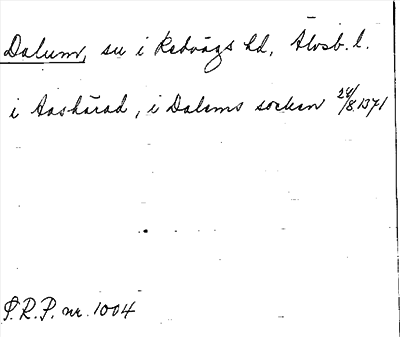 Dalum, sn i Redvägs hd, Älvsb. l.
i Aashärad, i Dalems socken 24/8 1371
S.R.P. nr. 1004